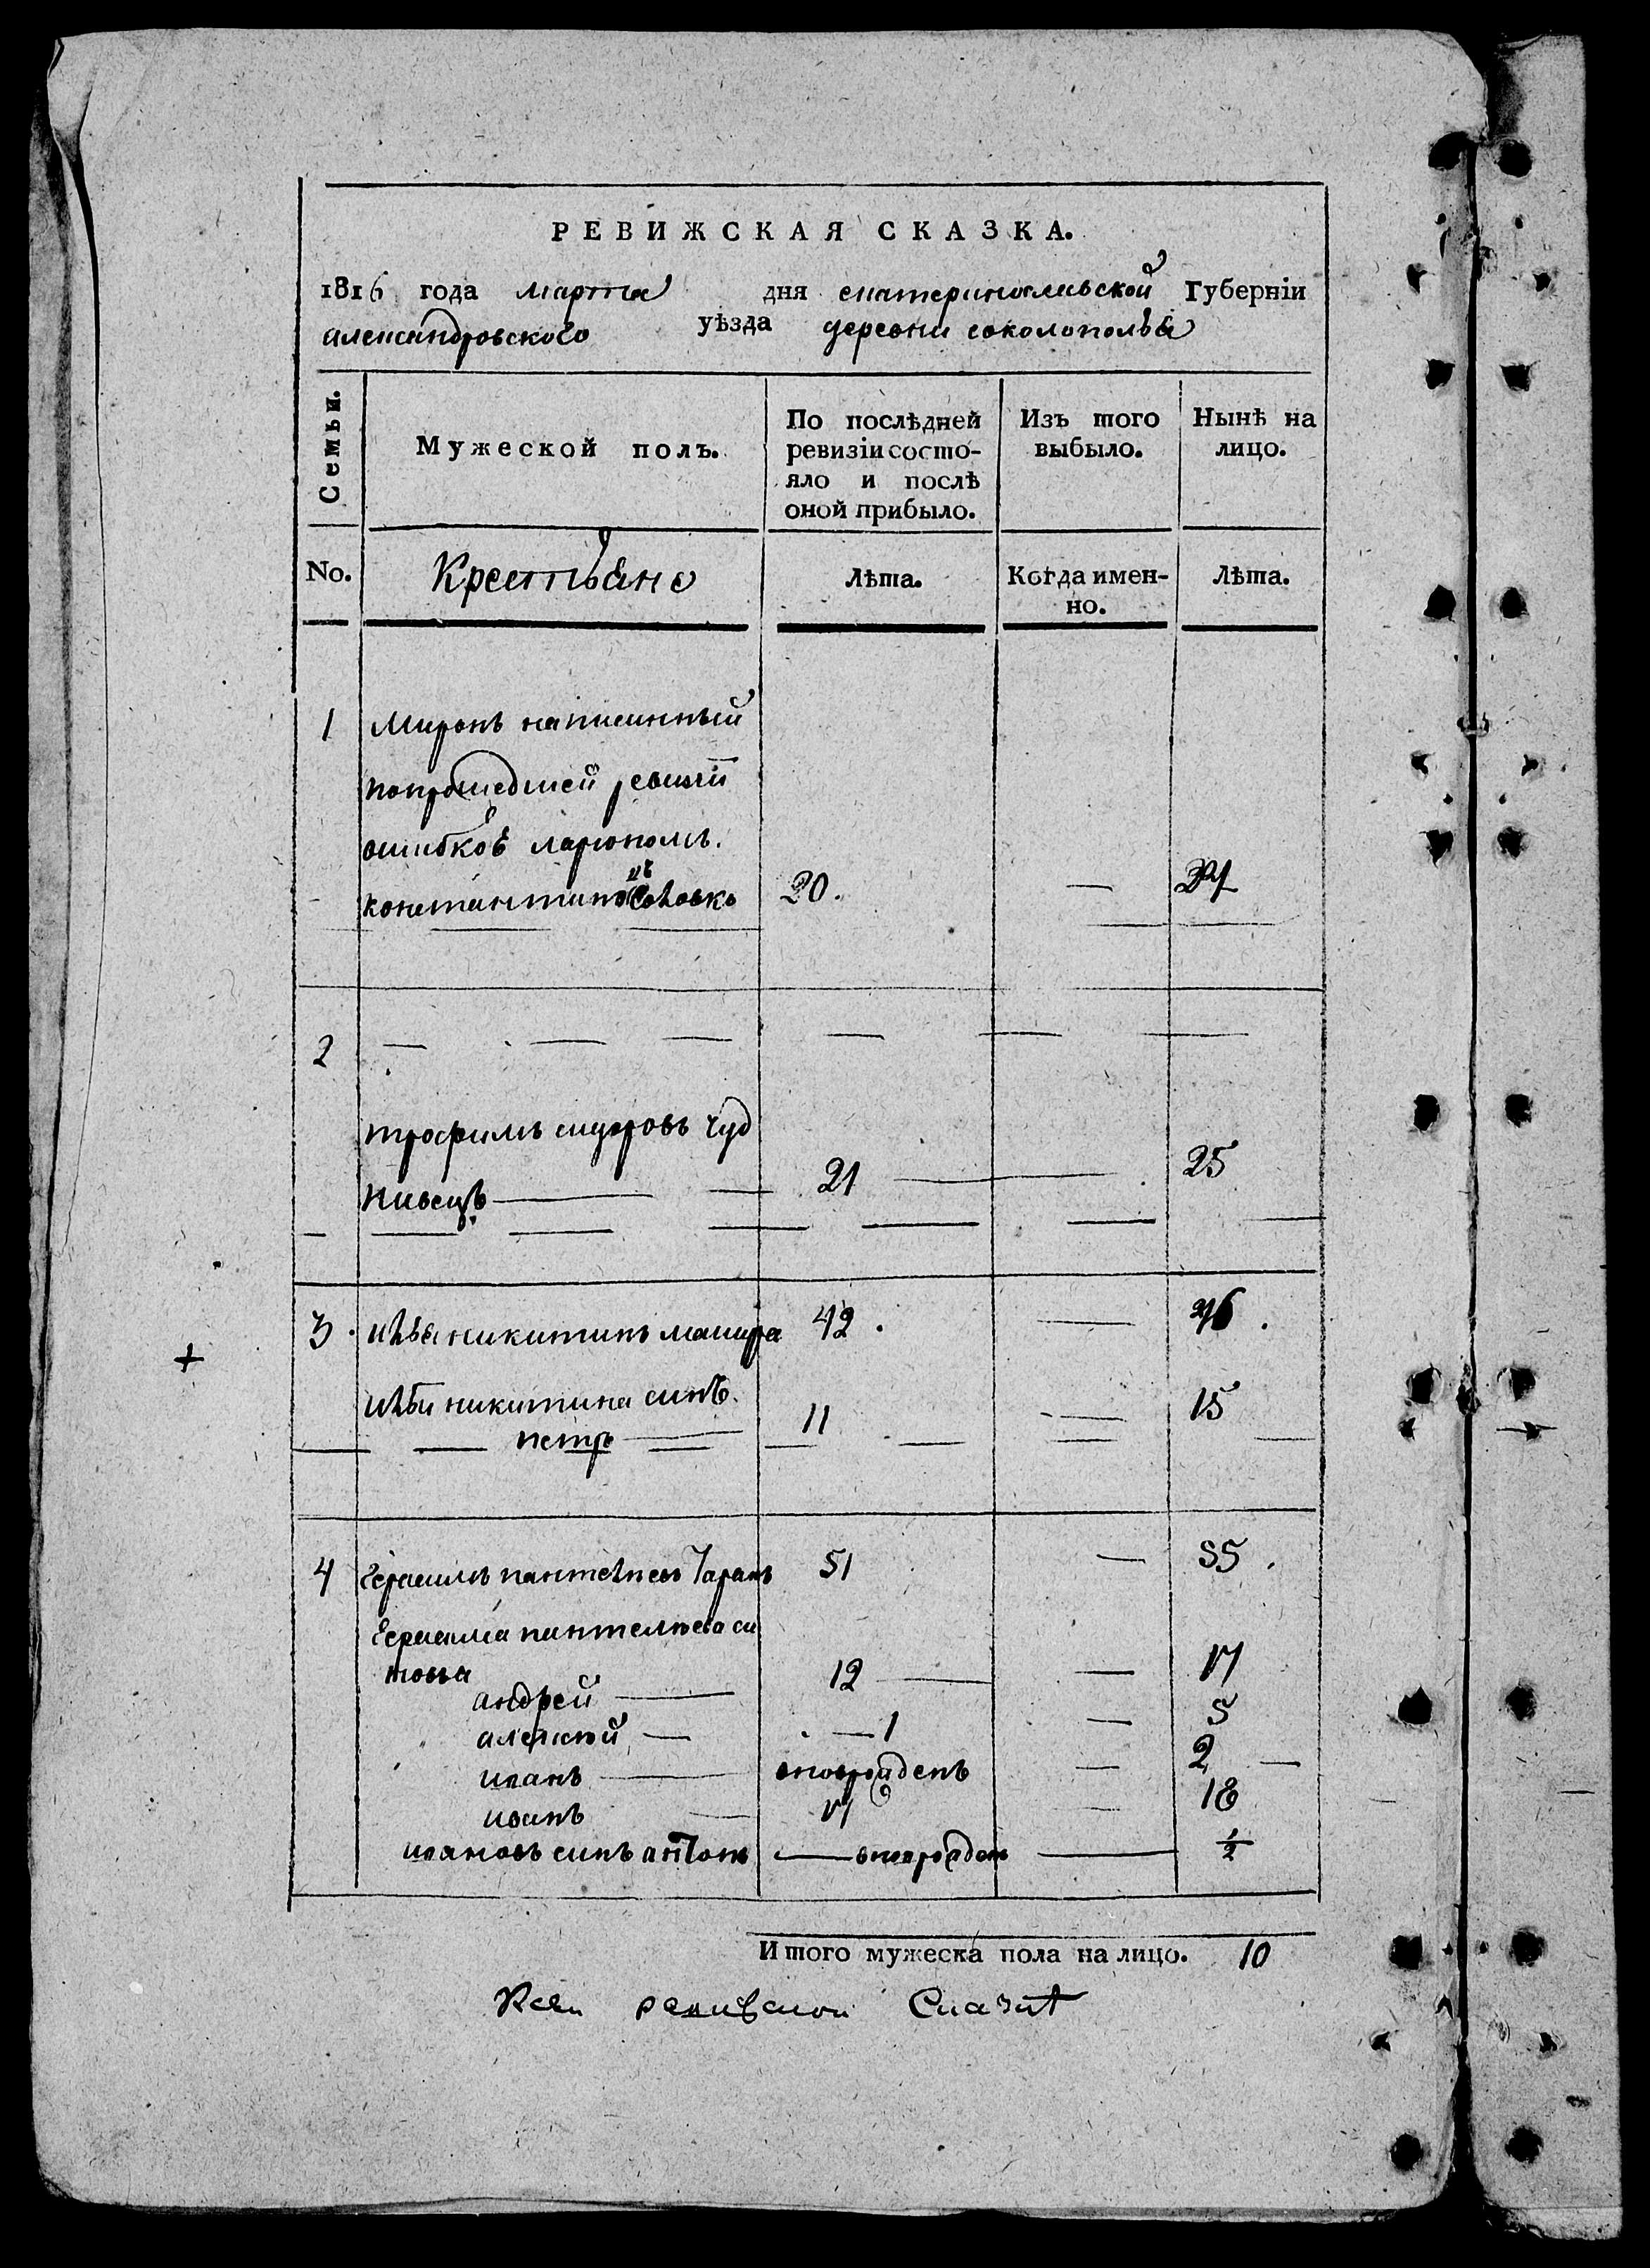 РЕВИЖСКАЯ СКАЗКА.
1816 года марта дня екатеринославской Губерніи
александровского уѣзда деревни соколополья
Семьи.
Мужеской полъ.
По послѣдней ревизіи состо-
яло и послѣ
оной прибыло.
Изъ того
выбыло.
Нынѣ на
лицо.
No.
Крестьяне
Лѣта.
Когда имен-
но.
Лѣта.
1 Миронъ написинный
попрошедшей ревизіи
ошибкоѣ
константиновъ 20. —
2 — — — — — —
трофимъ сидоровъ чуд
нивецъ — 21 — 25
3 никитинъ 42. — 46.
никитина синъ.
петръ — 11 — 15
4 Герасимъ пантелѣевъ Таранъ 51 — 55.
Герасима пантелѣева си
новья
андрей — 12 — — 17
алексѣй — — 1 — 5
иванъ — вноврожденъ — 2 —
иванъ — — 18
ивановъ синъ антонъ — вноврожденъ — 1/2
Итого мужеска пола на лицо. 10
Сказкѣ